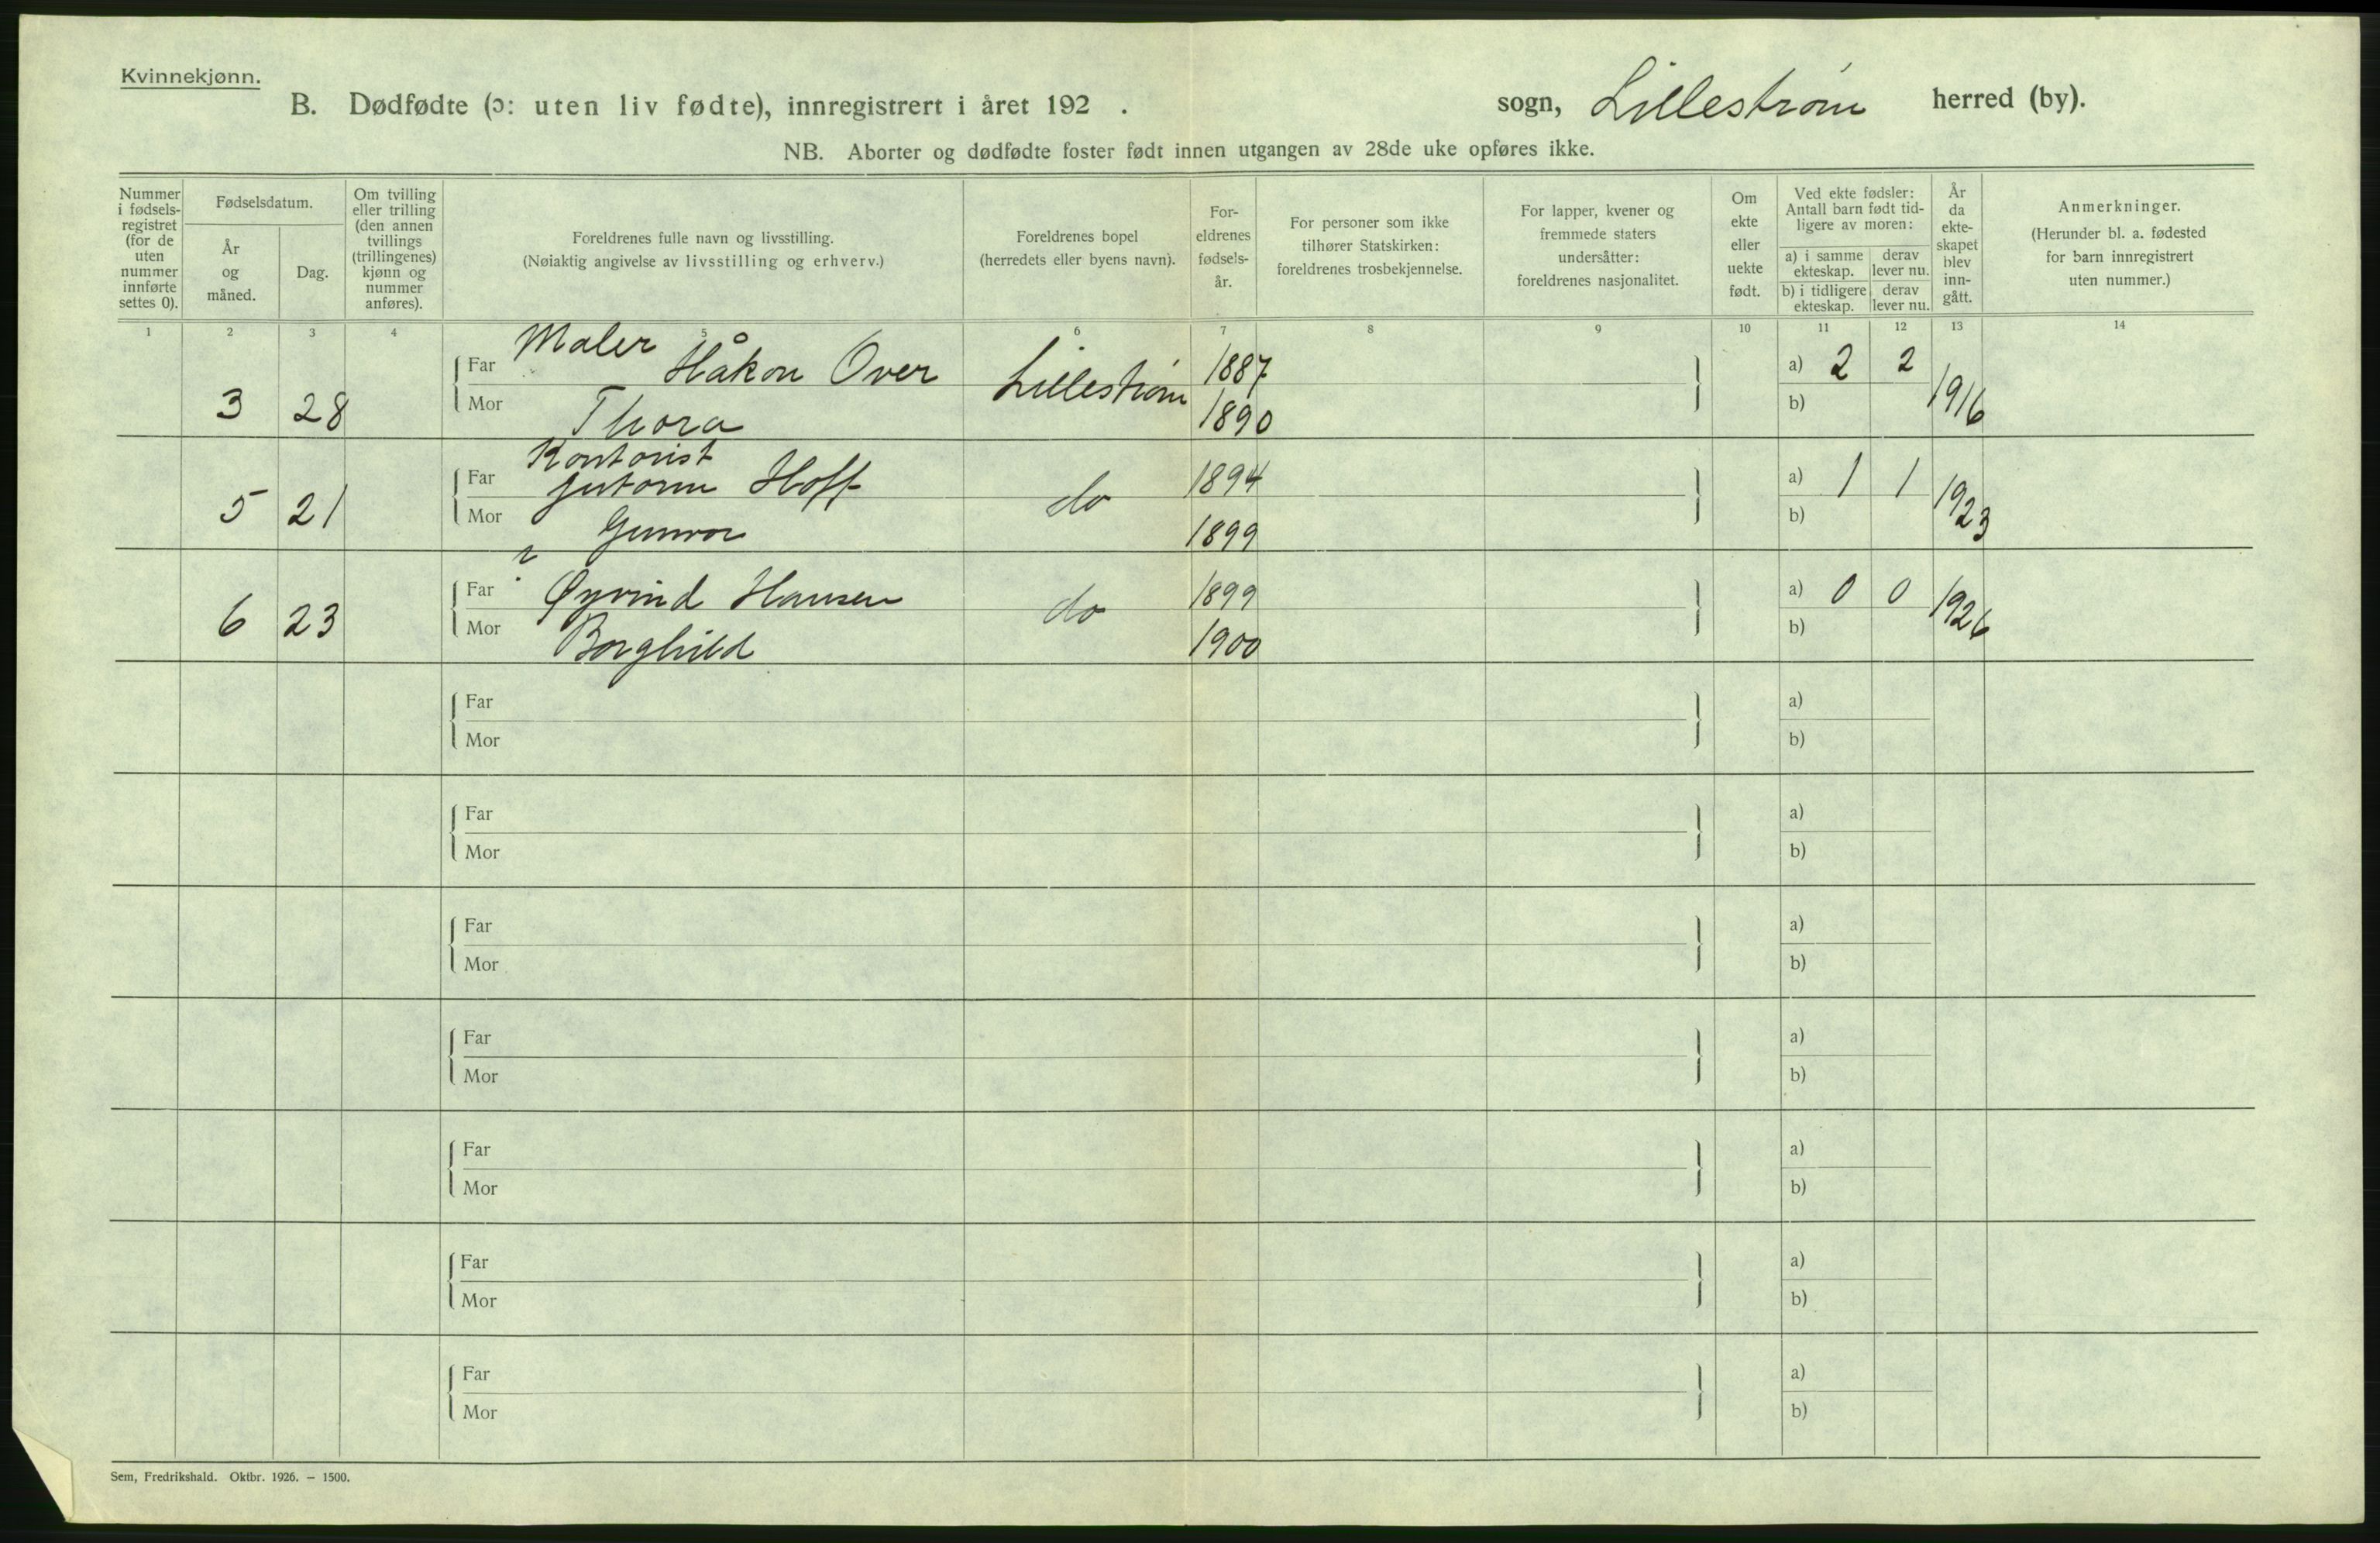 Kvinnekjønn.
B. Dødfødte (ɔ: uten liv fødte), innregistrert i året 192 . sogn, Lillestrøm herred (by).
NB. Aborter og dødfødte foster født innen utgangen av 28de uke opføres ikke.
Nummer i fødselsregistret (for de uten nummer innførte settes 0).
Fødselsdatum.
År og måned.
Dag.
Om tvilling eller trilling (den annen tvillings (trillingenes) kjønn og nummer anføres).
Foreldrenes fulle navn og livsstilling.
(Nøiaktig angivelse av livsstilling og erhverv.)
Foreldrenes bopel
(herredets eller byens navn).
Foreldrenes fødselsår.
For personer som ikke tilhører Statskirken: foreldrenes trosbekjennelse.
For lapper, kvener og fremmede staters undersåtter: foreldrenes nasjonalitet.
Om ekte eller uekte født.
Ved ekte fødsler: Antall barn født tidligere av moren:
a) i samme ekteskap. derav lever nu.
b) i tidligere ekteskap. derav lever nu.
År da ekteskapet blev inngått.
Anmerkninger.
(Herunder bl. a. fødested for barn innregistrert uten nummer.)
1 2 3 4 5 6 7 8 9 10 11 12 13 14
Maler
3 28 Far Håkon Over Lillestrøm 1887 a) 2 2 1916
Mor Thora 1890 b)
Kontorist
5 21 Far Hoff do 1894 a) 1 1 1923
Mor Gunvor 1899 b)
6 23 Far Øyvind Hansen do 1899 a) 0 0 1926
Mor Borghild 1900 b)
Far a)
Mor b)
Far a)
Mor b)
Far a)
Mor b)
Far a)
Mor b)
Far a)
Mor b)
Far a)
Mor b)
Far a)
Mor b)
Sem, Fredrikshald. Oktbr. 1926. – 1500.